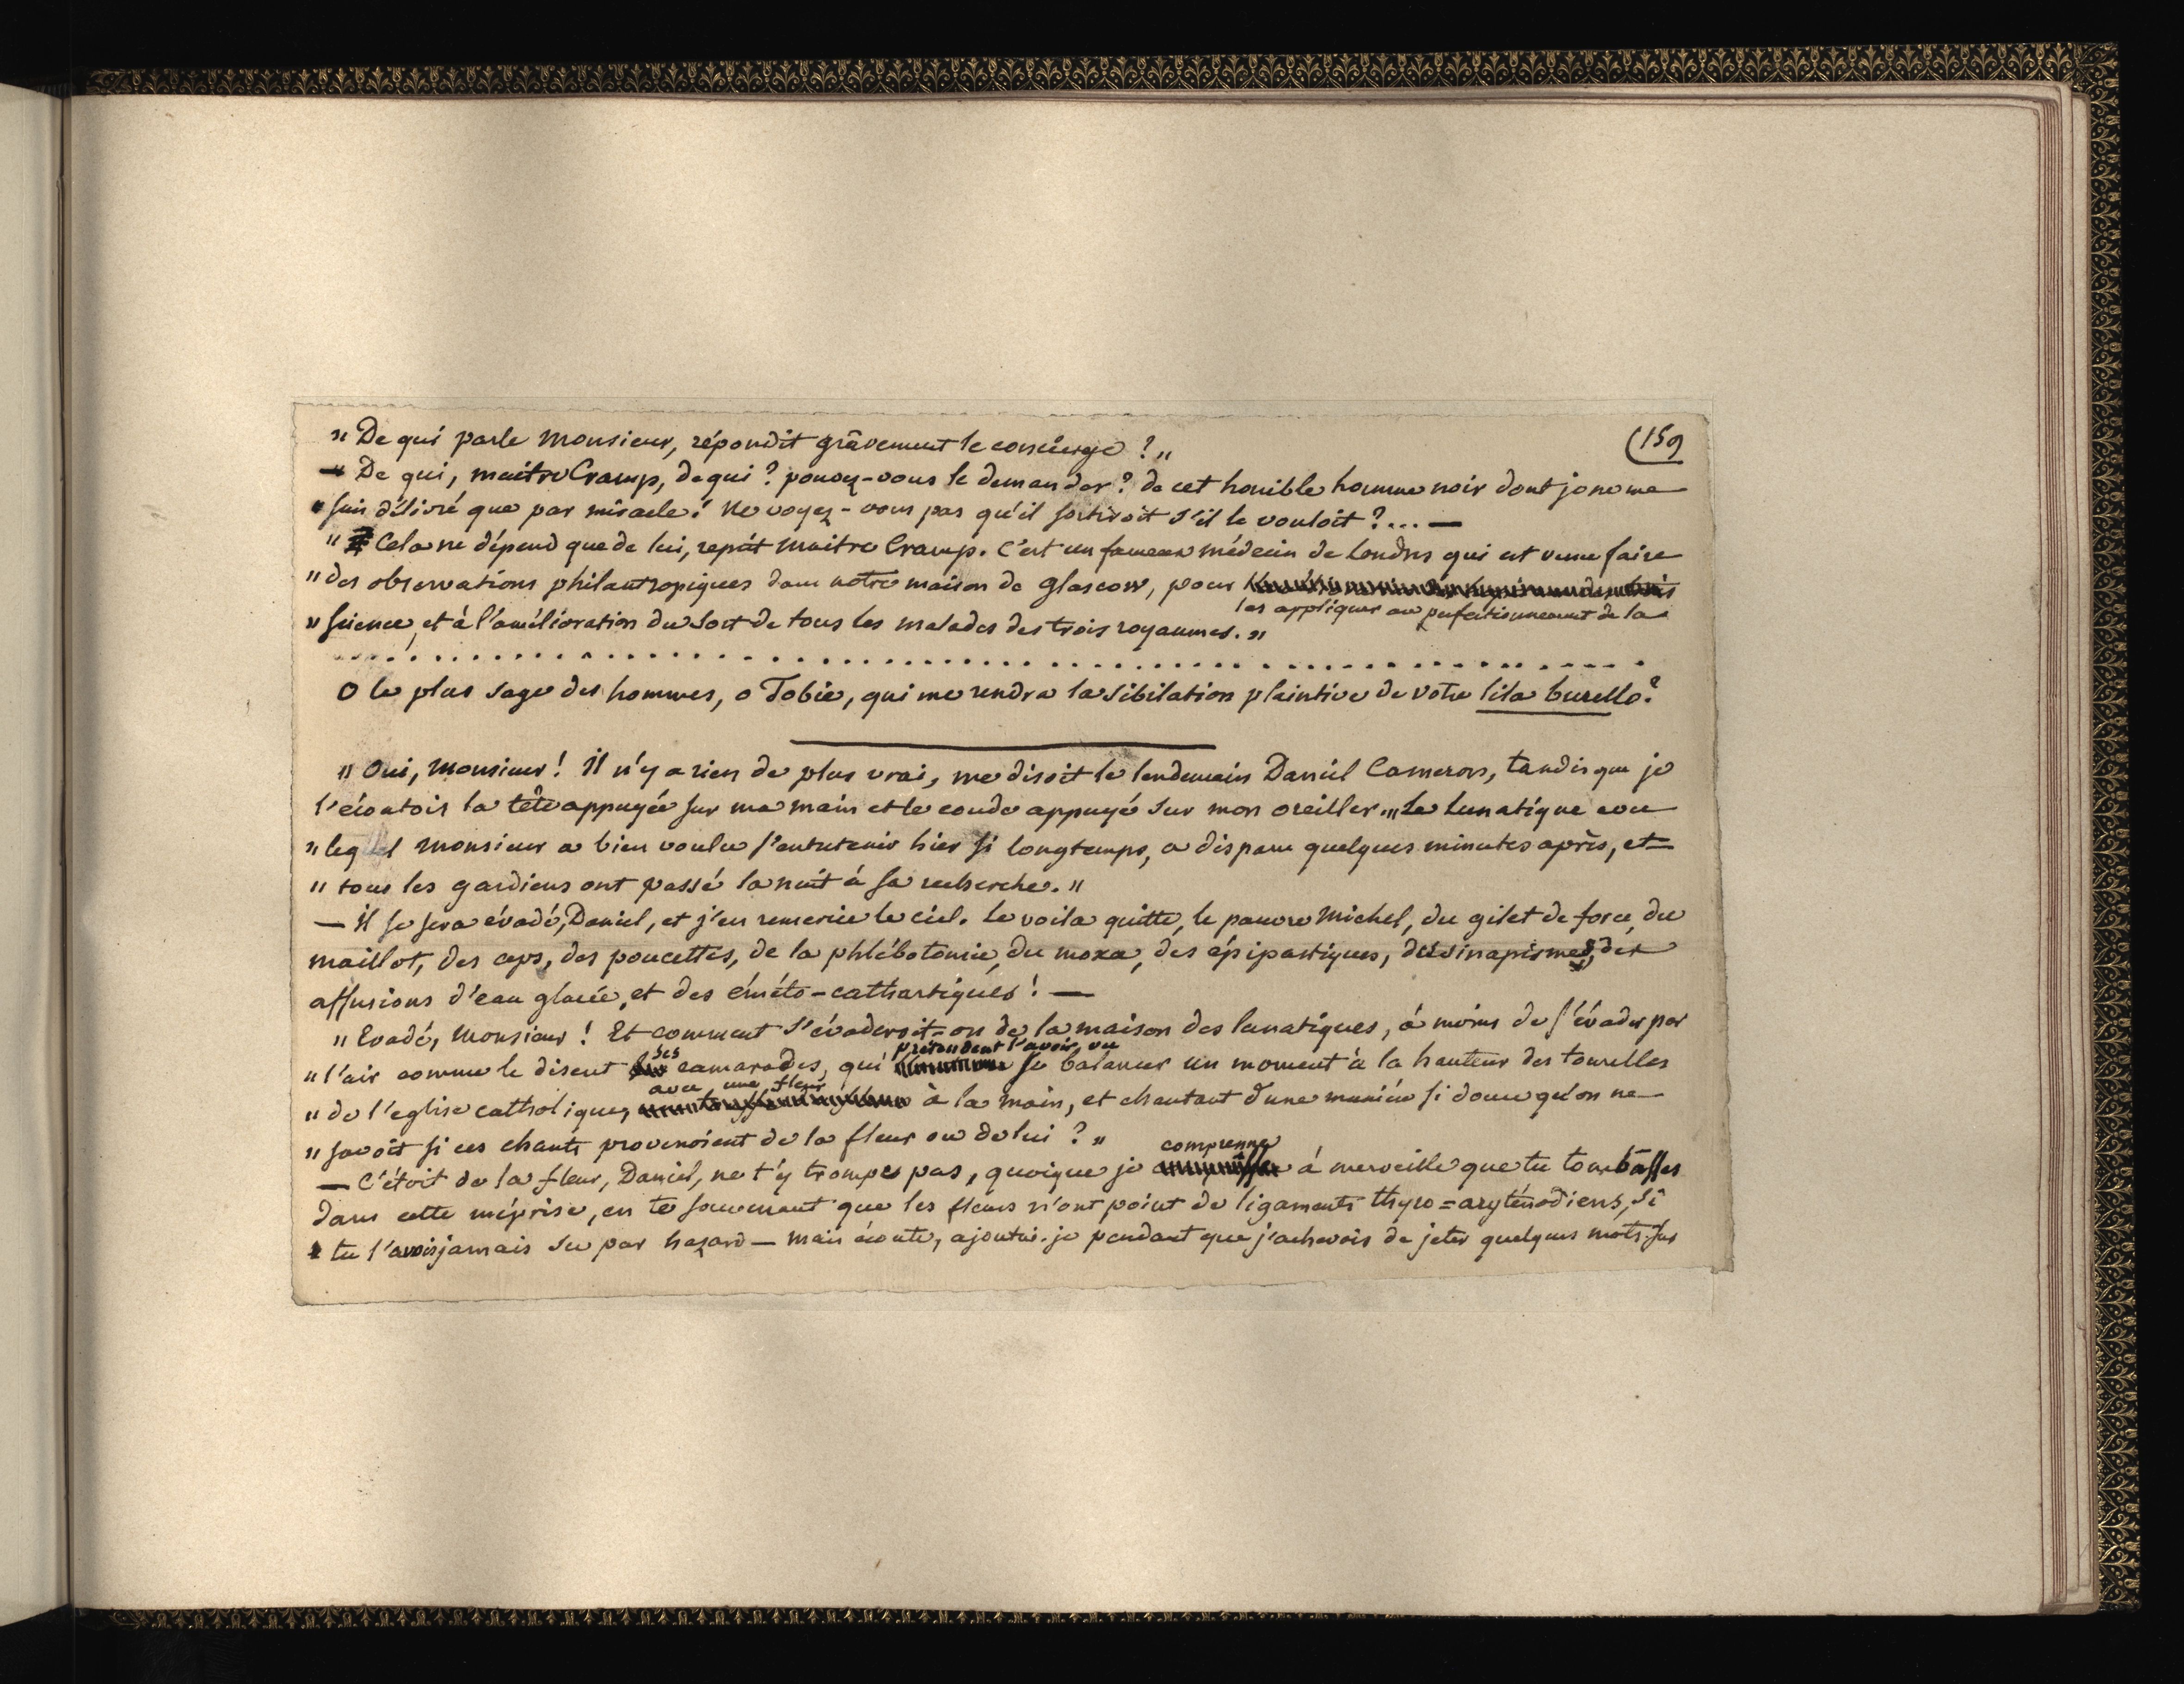 (159
" De qui parle Monsieur, répondit grâvement le concierge ? "
— De qui, maitre Cramp, de qui ? pouvez-vous le demander ? de cet horrible homme noir dont je ne me
suis délivré que par miracle ! Ne voyez-vous pas qu'il sortiroit s'il le vouloit ?... —
" Cela ne dépend que de lui, reprit Maitre Cramp. C'est un fameux médecin de Londres qui est venu faire
" des observations philantropiques dans notre maison de Glascow, pour
les appliquer au perfectionnement de la
" science, et à l'amélioration du sort de tous les malades des trois royaumes. "
. . . . . . . . . . . . . . . . . . . . . . . . . . . . . . . . . . . . . . . .
O le plus sage des hommes, o Tobie, qui me rendra la sibilation plaintive de votre lila burello ?
" Oui, Monsieur ! Il n'y a rien de plus vrai, me disoit le lendemain Daniel Cameron, tandis que je
l'écoutois la tête appuyée sur ma main et le coude appuyé sur mon oreiller. " Le Lunatique avec
" lequel Monsieur a bien voulu s'entretenir hier si longtemps, a disparu quelques minutes après, et
" tous les gardiens ont passé la nuit à sa recherche. "
— Il se sera évadé, Daniel, et j'en remercie le ciel. Le voila quitte, le pauvre Michel, du gilet de force, du
maillot, des ceps, des poucettes, de la phlébotomie, du moxa, des épipastiques, des sinapismes, des
affusions d'eau glacée, et des éméto-cathartiques ! —
" Evadé, Monsieur ! Et comment s'évaderoit-on de la maison des lunatiques, à moins de s'évader par
ses prétendent l'avoir vu
" l'air comme le disent camarades, qui se balancer un moment à la hauteur des tourelles
avec une fleur
" de l'eglise catholique, à la main, et chantant d'une manière si douce qu'on ne
" savoit si ces chants provenoient de la fleur ou de lui ? "
comprenne
— C'étoit de la fleur, Daniel, ne t'y trompes pas, quoique je à merveille que tu tombasses
dans cette méprise, en te souvenant que les fleurs n'ont point de ligaments thyro=aryténodiens, si
tu l'avois jamais su par hazard — mais écoute, ajoutai-je pendant que j'achevois de jeter quelques mots sur